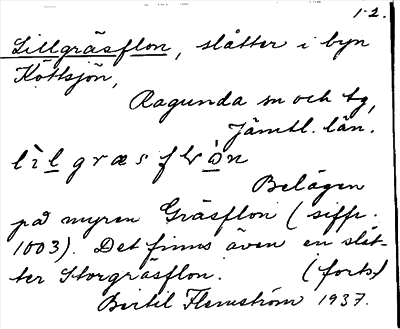 1-2.
Lillgräsflon, slåtter i byn
Köttsjön,
Ragunda sn och tg,
Jämtl. län.
Belägen
på myren Gräsflon (siffr.
1003). Det finns även en slåt-
ter Storgräsflon. (forts)
Bertil Flemström 1937.